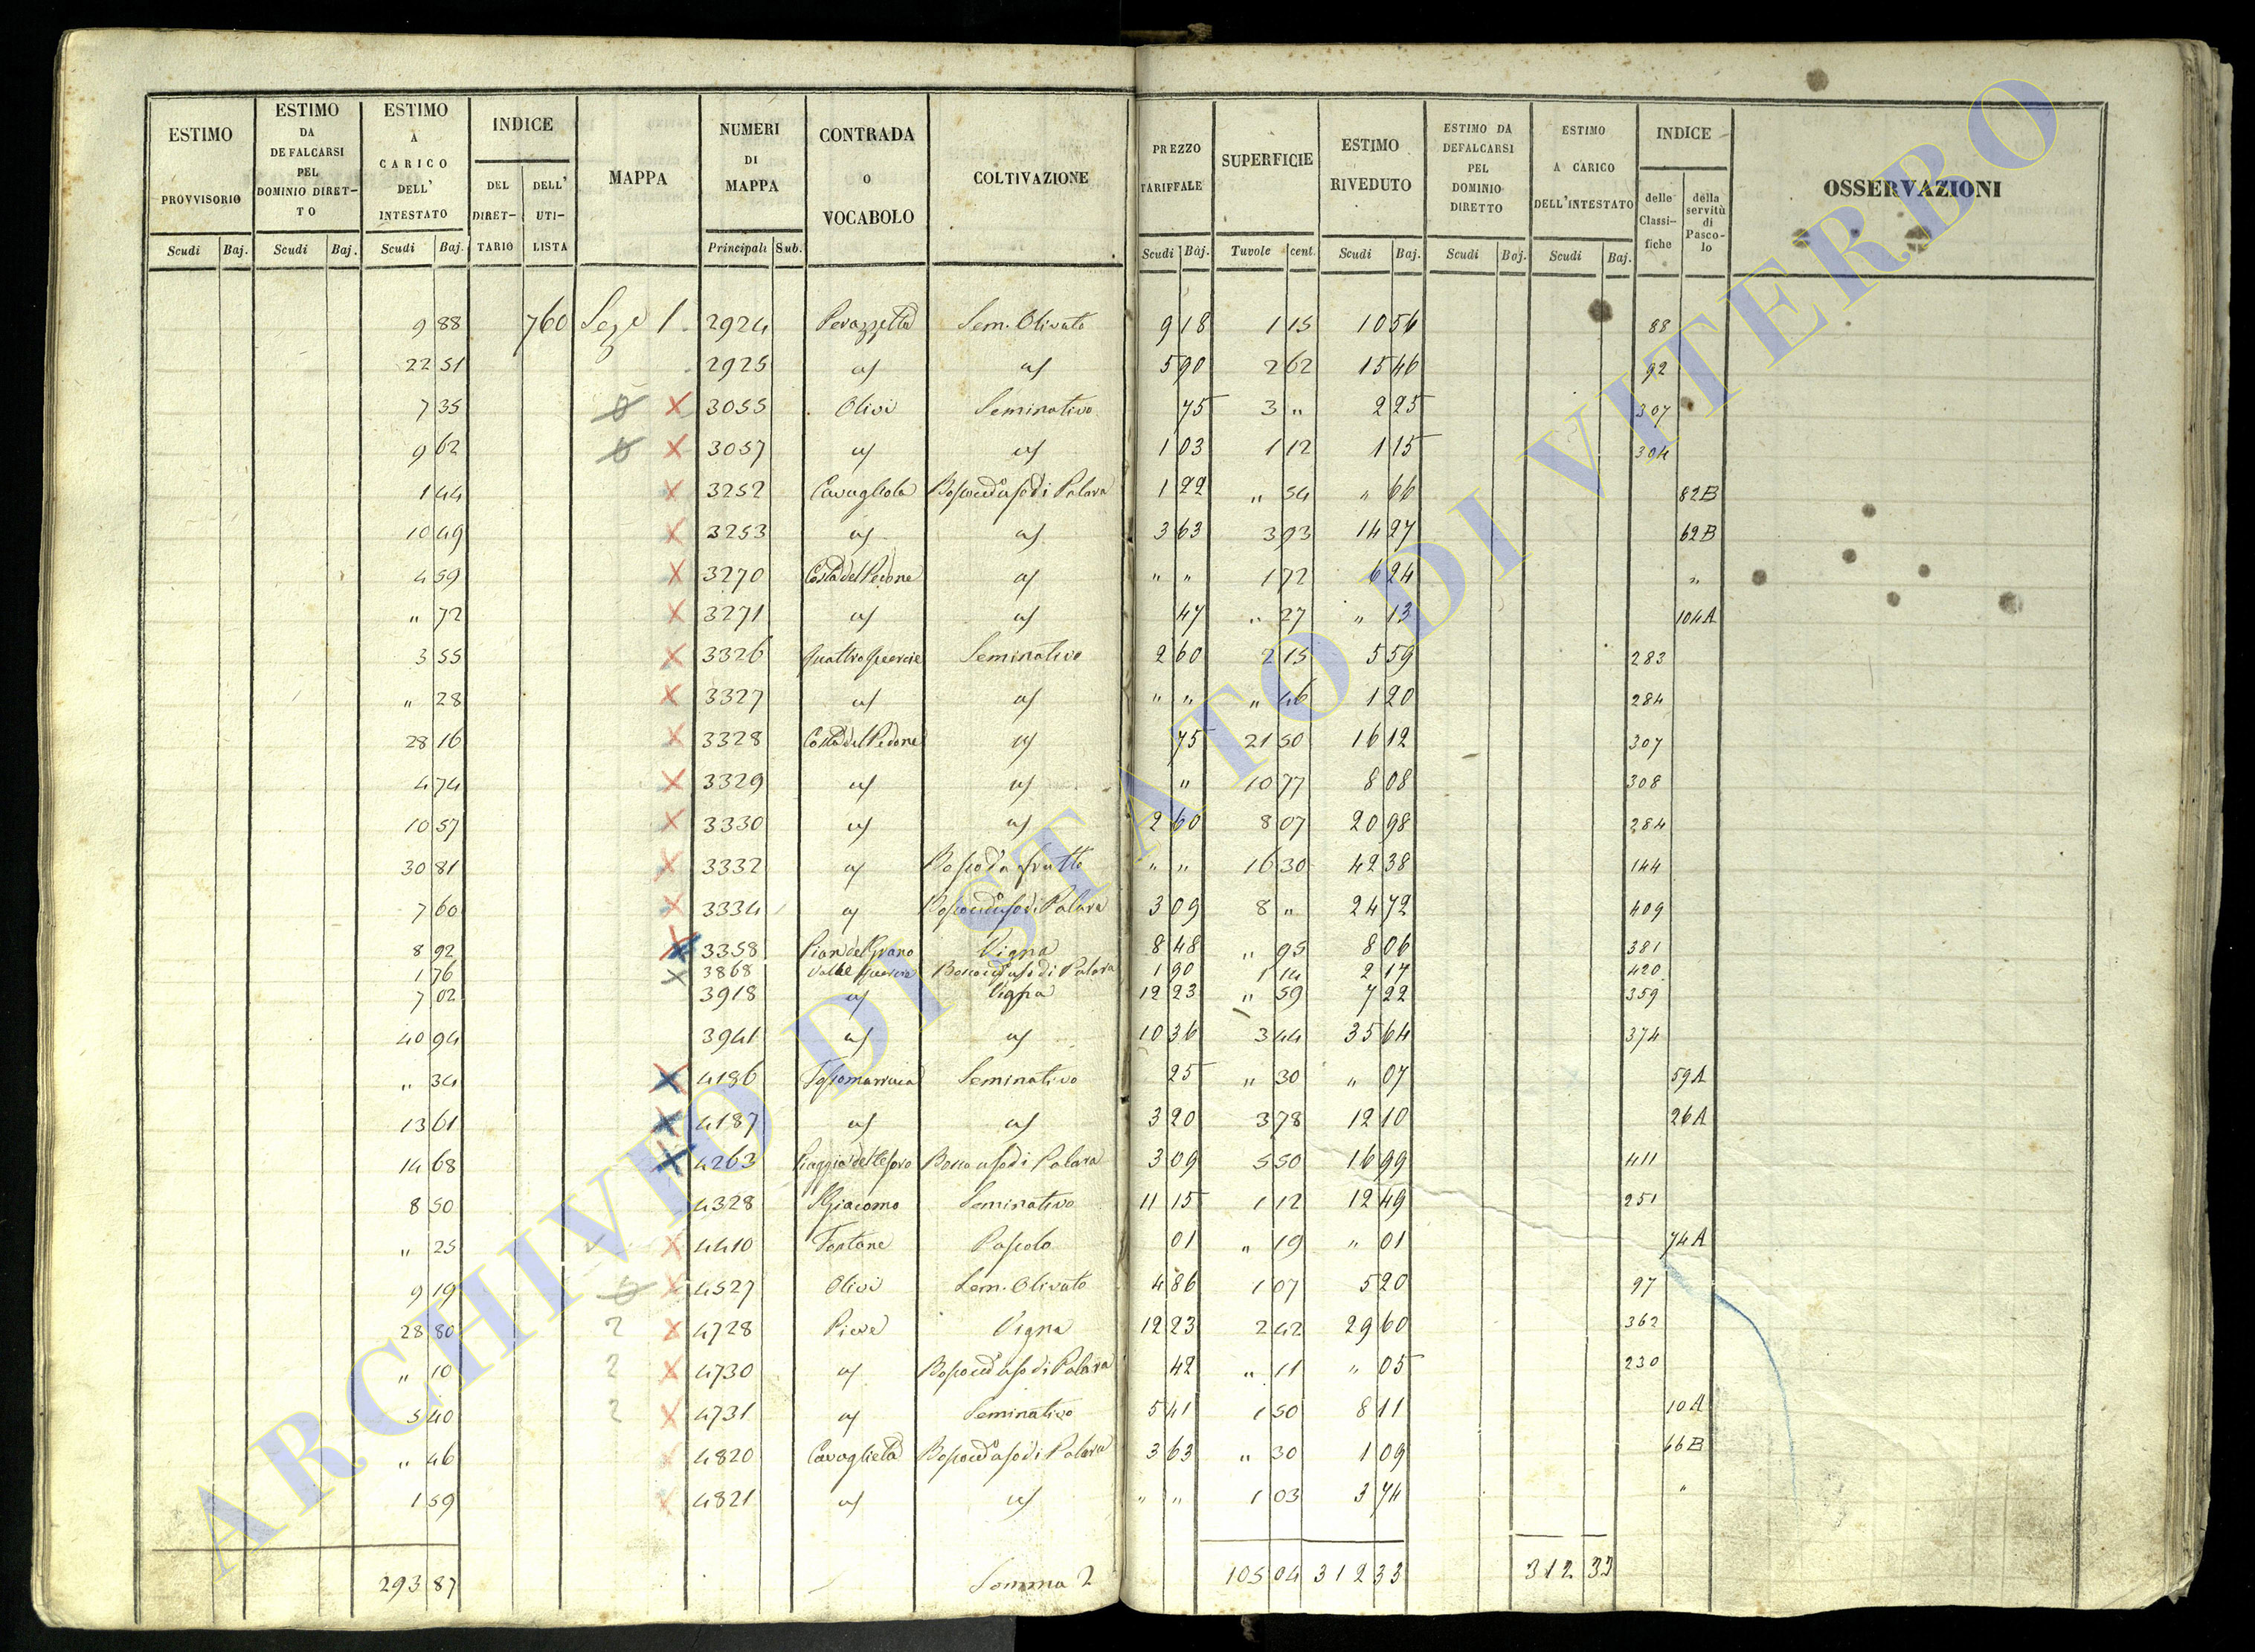 ESTIMO PROVVISORIO | ESTIMO DA DEFALCARSI PEL DOMINIO DIRET-TO | ESTIMO A CARICO DELL' INTESTATO | INDICE DEL DIRET-TARIO | DELL' UTI-LISTA | MAPPA | NUMERI DI MAPPA | CONTRADA O VOCABOLO | COLTIVAZIONE | PREZZO TARIFFALE | SUPERFICIE | ESTIMO RIVEDUTO | ESTIMO DA DEFALCARSI PEL DOMINIO DIRETTO | ESTIMO A CARICO DELL'INTESTATO | INDICE delle Classi-fiche | della servitù di Pasco-lo | OSSERVAZIONI
Scudi Baj. | Scudi Baj. | Scudi Baj. | Principali Sub. | Scudi Baj. | Tavole cent. | Scudi Baj. | Scudi Baj. | Scudi Baj.
9 88 760 1 2924 Sem. Olivato 9 18 1 15 10 56 88
22 51 2925 " " 5 90 2 62 15 46 92
7 35 3055 Olivi Seminativo 75 3 " 2 25 307
9 62 3057 " " 1 03 1 12 1 15 304
1 44 3252 1 22 " 54 " 66 82B
10 49 3253 " " 3 63 3 93 14 27 62B
4 59 3270 " " " 1 72 6 24 "
" 72 3271 " " 47 " 27 " 13 104A
3 55 3326 Quattro Quercie Seminativo 2 60 2 15 5 59 283
" 28 3327 " " " " " 46 1 20 284
28 16 3328 " 75 21 50 16 12 307
4 74 3329 " " " 10 77 8 08 308
10 57 3330 " " 2 60 8 07 20 98 284
30 81 3332 " Bosco da frutto " " 16 30 42 38 144
7 60 3334 " 3 09 8 " 24 72 409
8 92 3358 Pian del Grano Vigna 8 48 " 95 8 06 381
1 76 3868 1 90 1 14 2 17 420
7 02 3918 " Vigna 12 23 " 59 7 22 359
40 94 3941 " " 10 36 3 44 35 64 374
" 34 4186 Seminativo 25 " 30 " 07 59A
13 61 4187 " " 3 20 3 78 12 10 26A
14 68 4263 3 09 5 50 16 99 411
8 50 4328 S. Giacomo Seminativo 11 15 1 12 12 49 251
" 25 4410 Fontane Pascolo 01 " 19 " 01 74A
9 19 4527 Olivi Sem. Olivato 4 86 1 07 5 20 97
28 80 2 4728 Pieve Vigna 12 23 2 42 29 60 362
" 10 2 4730 " 42 " 11 " 05 230
5 40 2 4731 " Seminativo 5 41 1 50 8 11 10A
" 46 4820 3 63 " 30 1 09 66B
1 59 4821 " " " " 1 03 3 74 "
293 87 Somma 2 105 04 312 33 312 33
ARCHIVIO DI STATO DI VITERBO